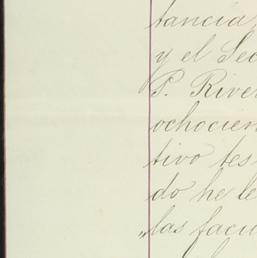 tancia
y el Sec
P. River
ochocien
tivo tes
do he le
„las facu